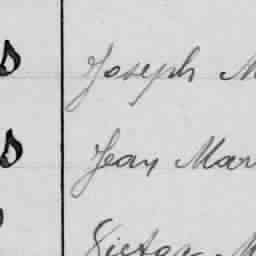 s Joseph M
s Jean Mar
Victor M